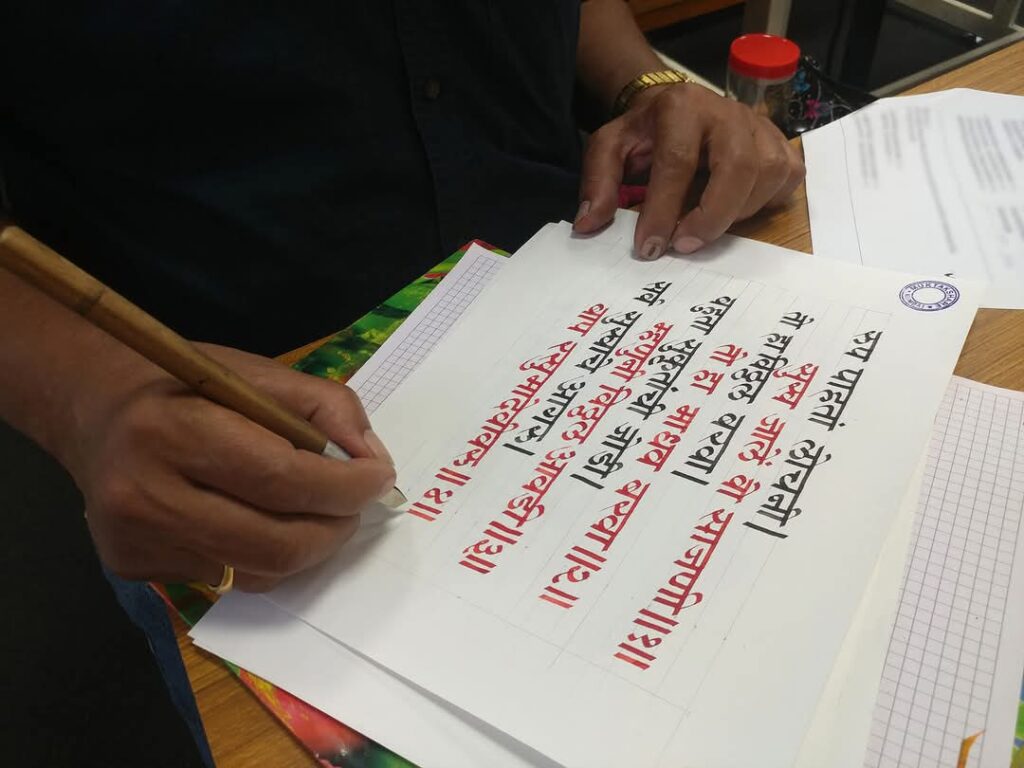 रुप पाहतां लोचनी।
सुख जालें वो साजणी॥१॥
तो हा विठ्ठल बरवा।
तो हा माधव बरवा॥२॥
बहुता सुकृतांची जोडी।
म्हणुनी विठ्ठल आवडी॥३॥
सर्व सुखाचे आगरू।
बाप रखुमादेवीवरू॥४॥